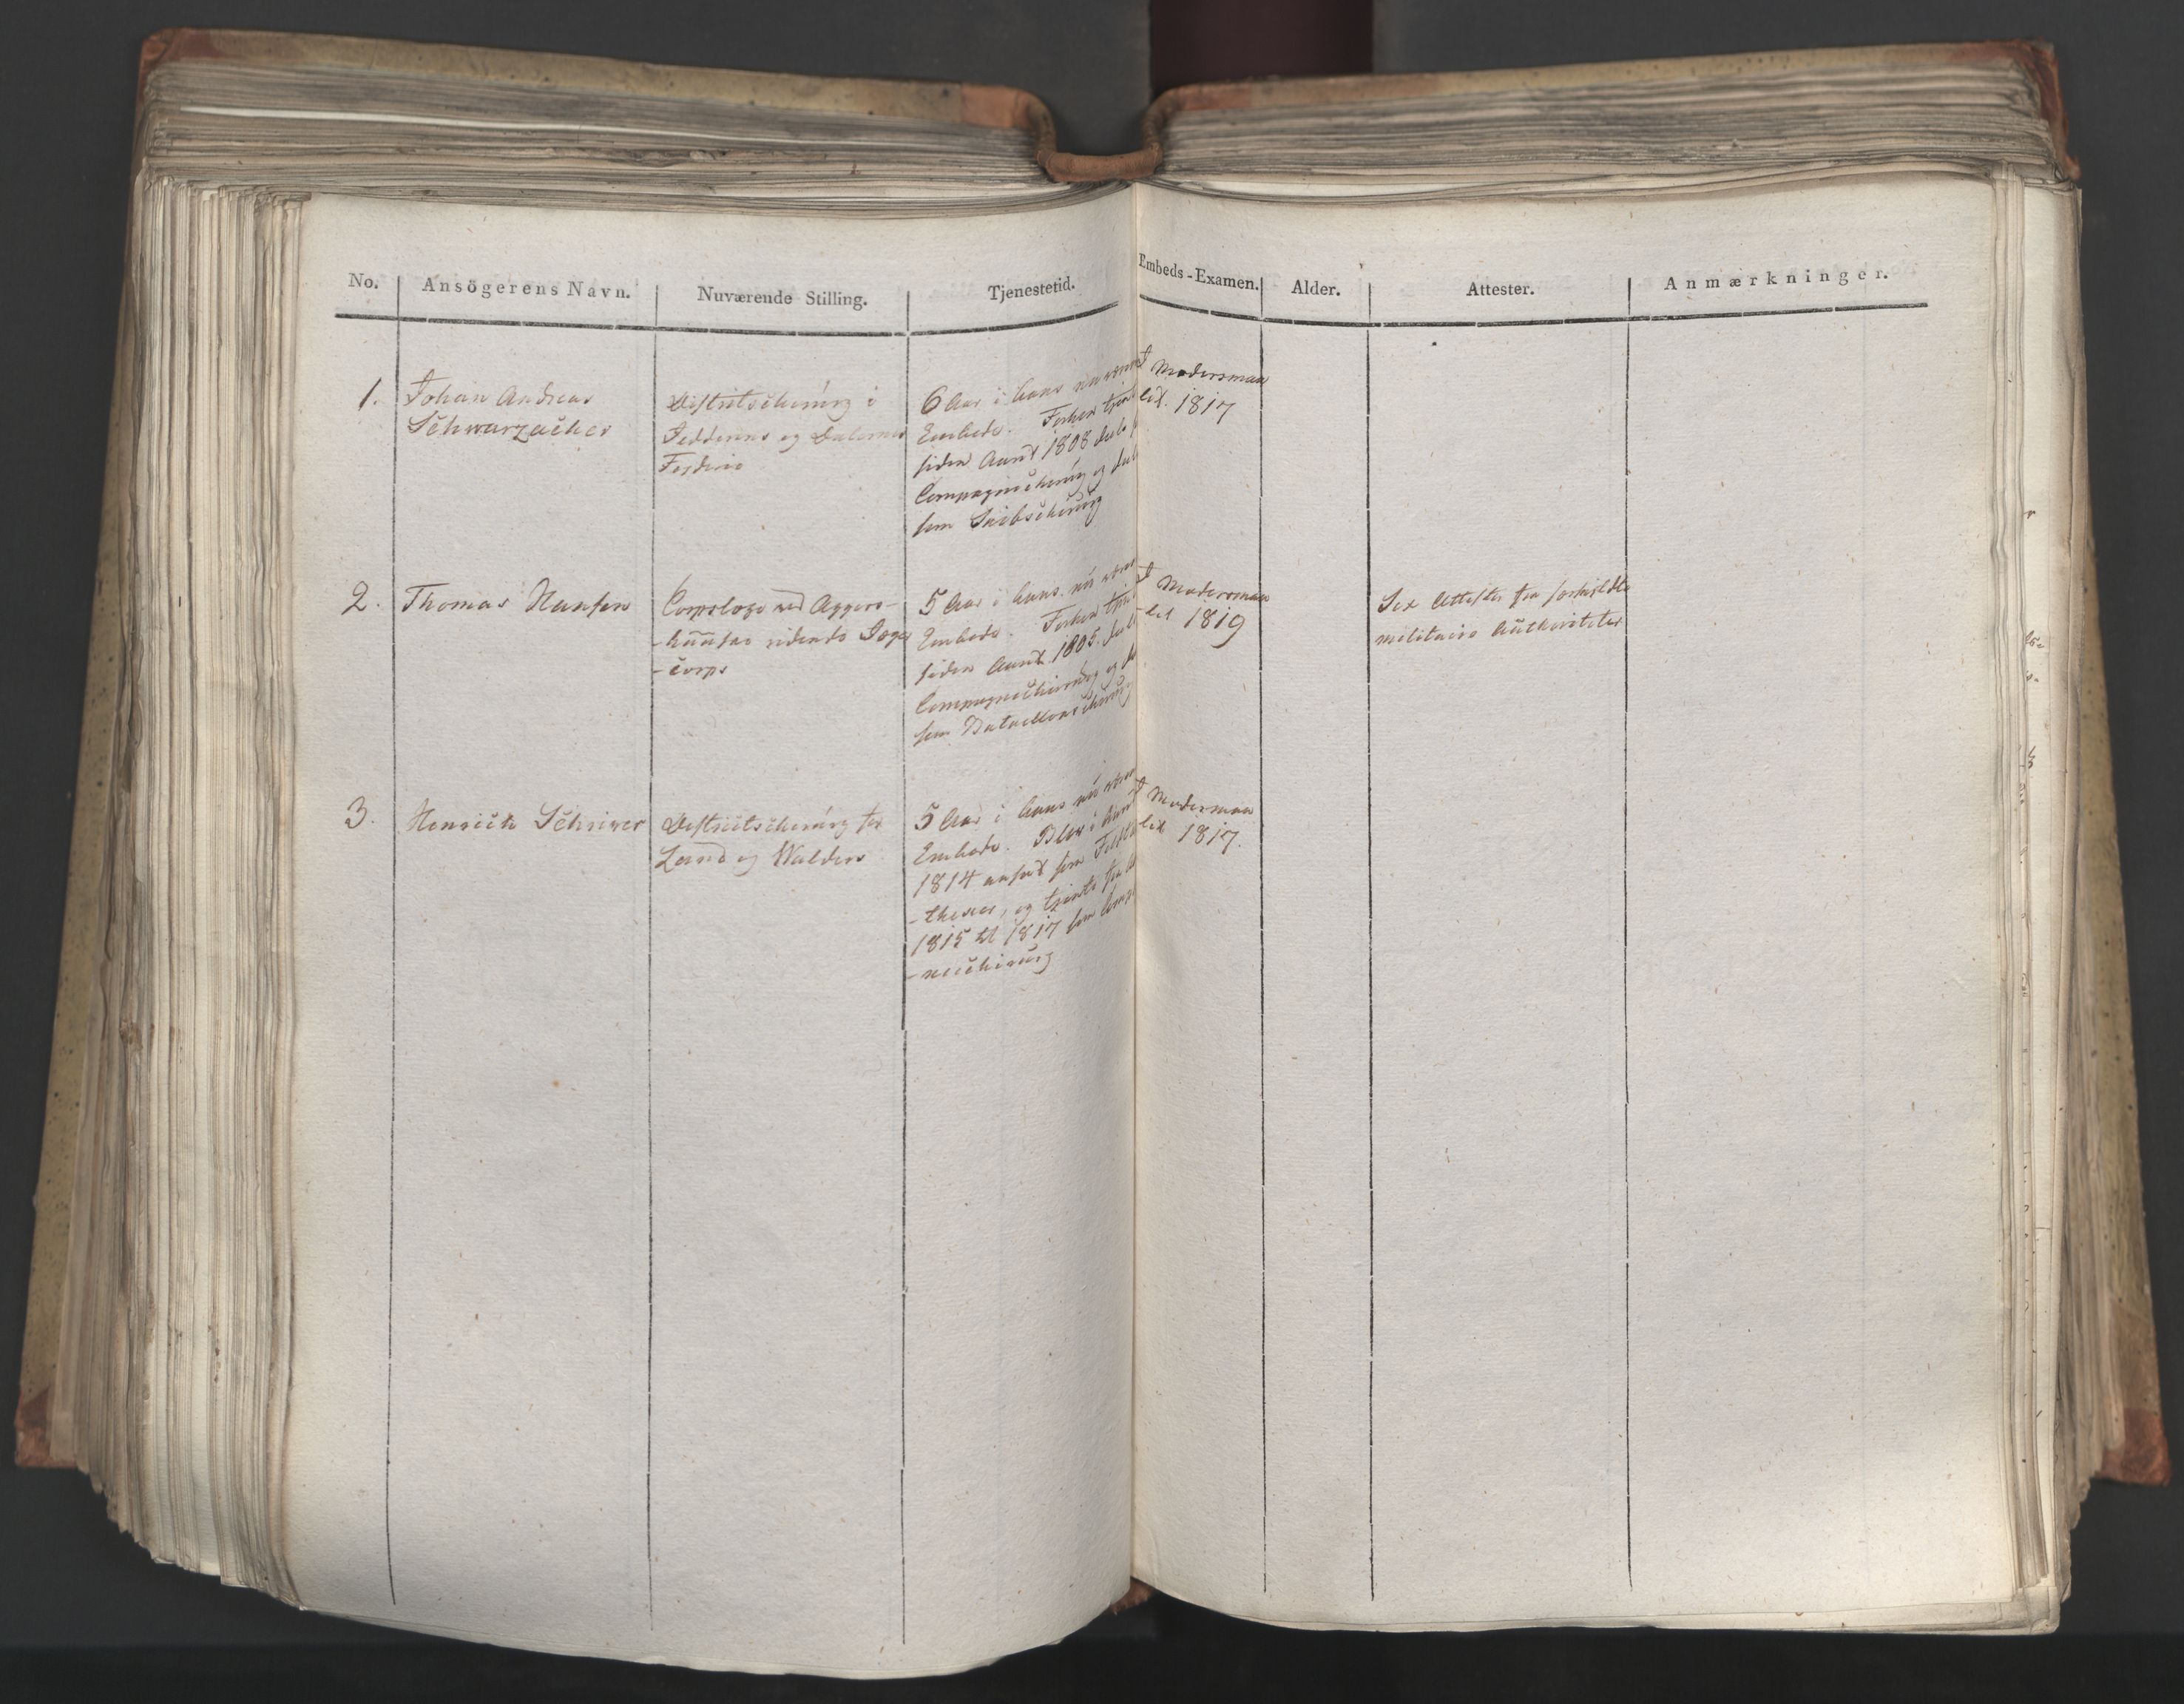 No. Ansögerens Navn. Nuværende Stilling. Tjenestetid. Embeds-Examen. Alder. Attester. Anmærkninger.
1.
Johan Andreas
Schwarzacher
Districtschirurg i
Jedderens og Dalernes
Fogderie
6 Aar i hans nuværen
Embede. Forhen tjent
siden Aaret 1808 deels
Compagniechirurg og deels
som Skibschirurg
I Modersmaa
let. 1817
2.
Thomas Hansen
Corpslæge ved Aggers-
-huusse ridende Jæger
-corps
5 Aar i hans nuværen
Embede. Forhen tjent
siden Aaret 1805. deels
Compagniechirurg og de
som Bataillonschirurg
I Modersmaa
-let 1819
Sex Attester fra forskjellte
militaire Authoriteter
3.
Henrich Schriwer
Districtschirurg for
Land og Walders
5 Aar i hans nuværen
Embede. Blev i Aaret
1814 ansat som
-theker, og tjente fra
1815 til 1817 som Compag
-niechirurg
I Modersmaa
let 1817.